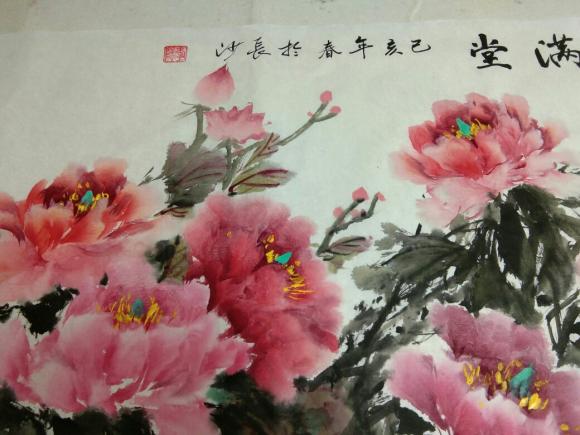 满堂 己亥年春於長沙